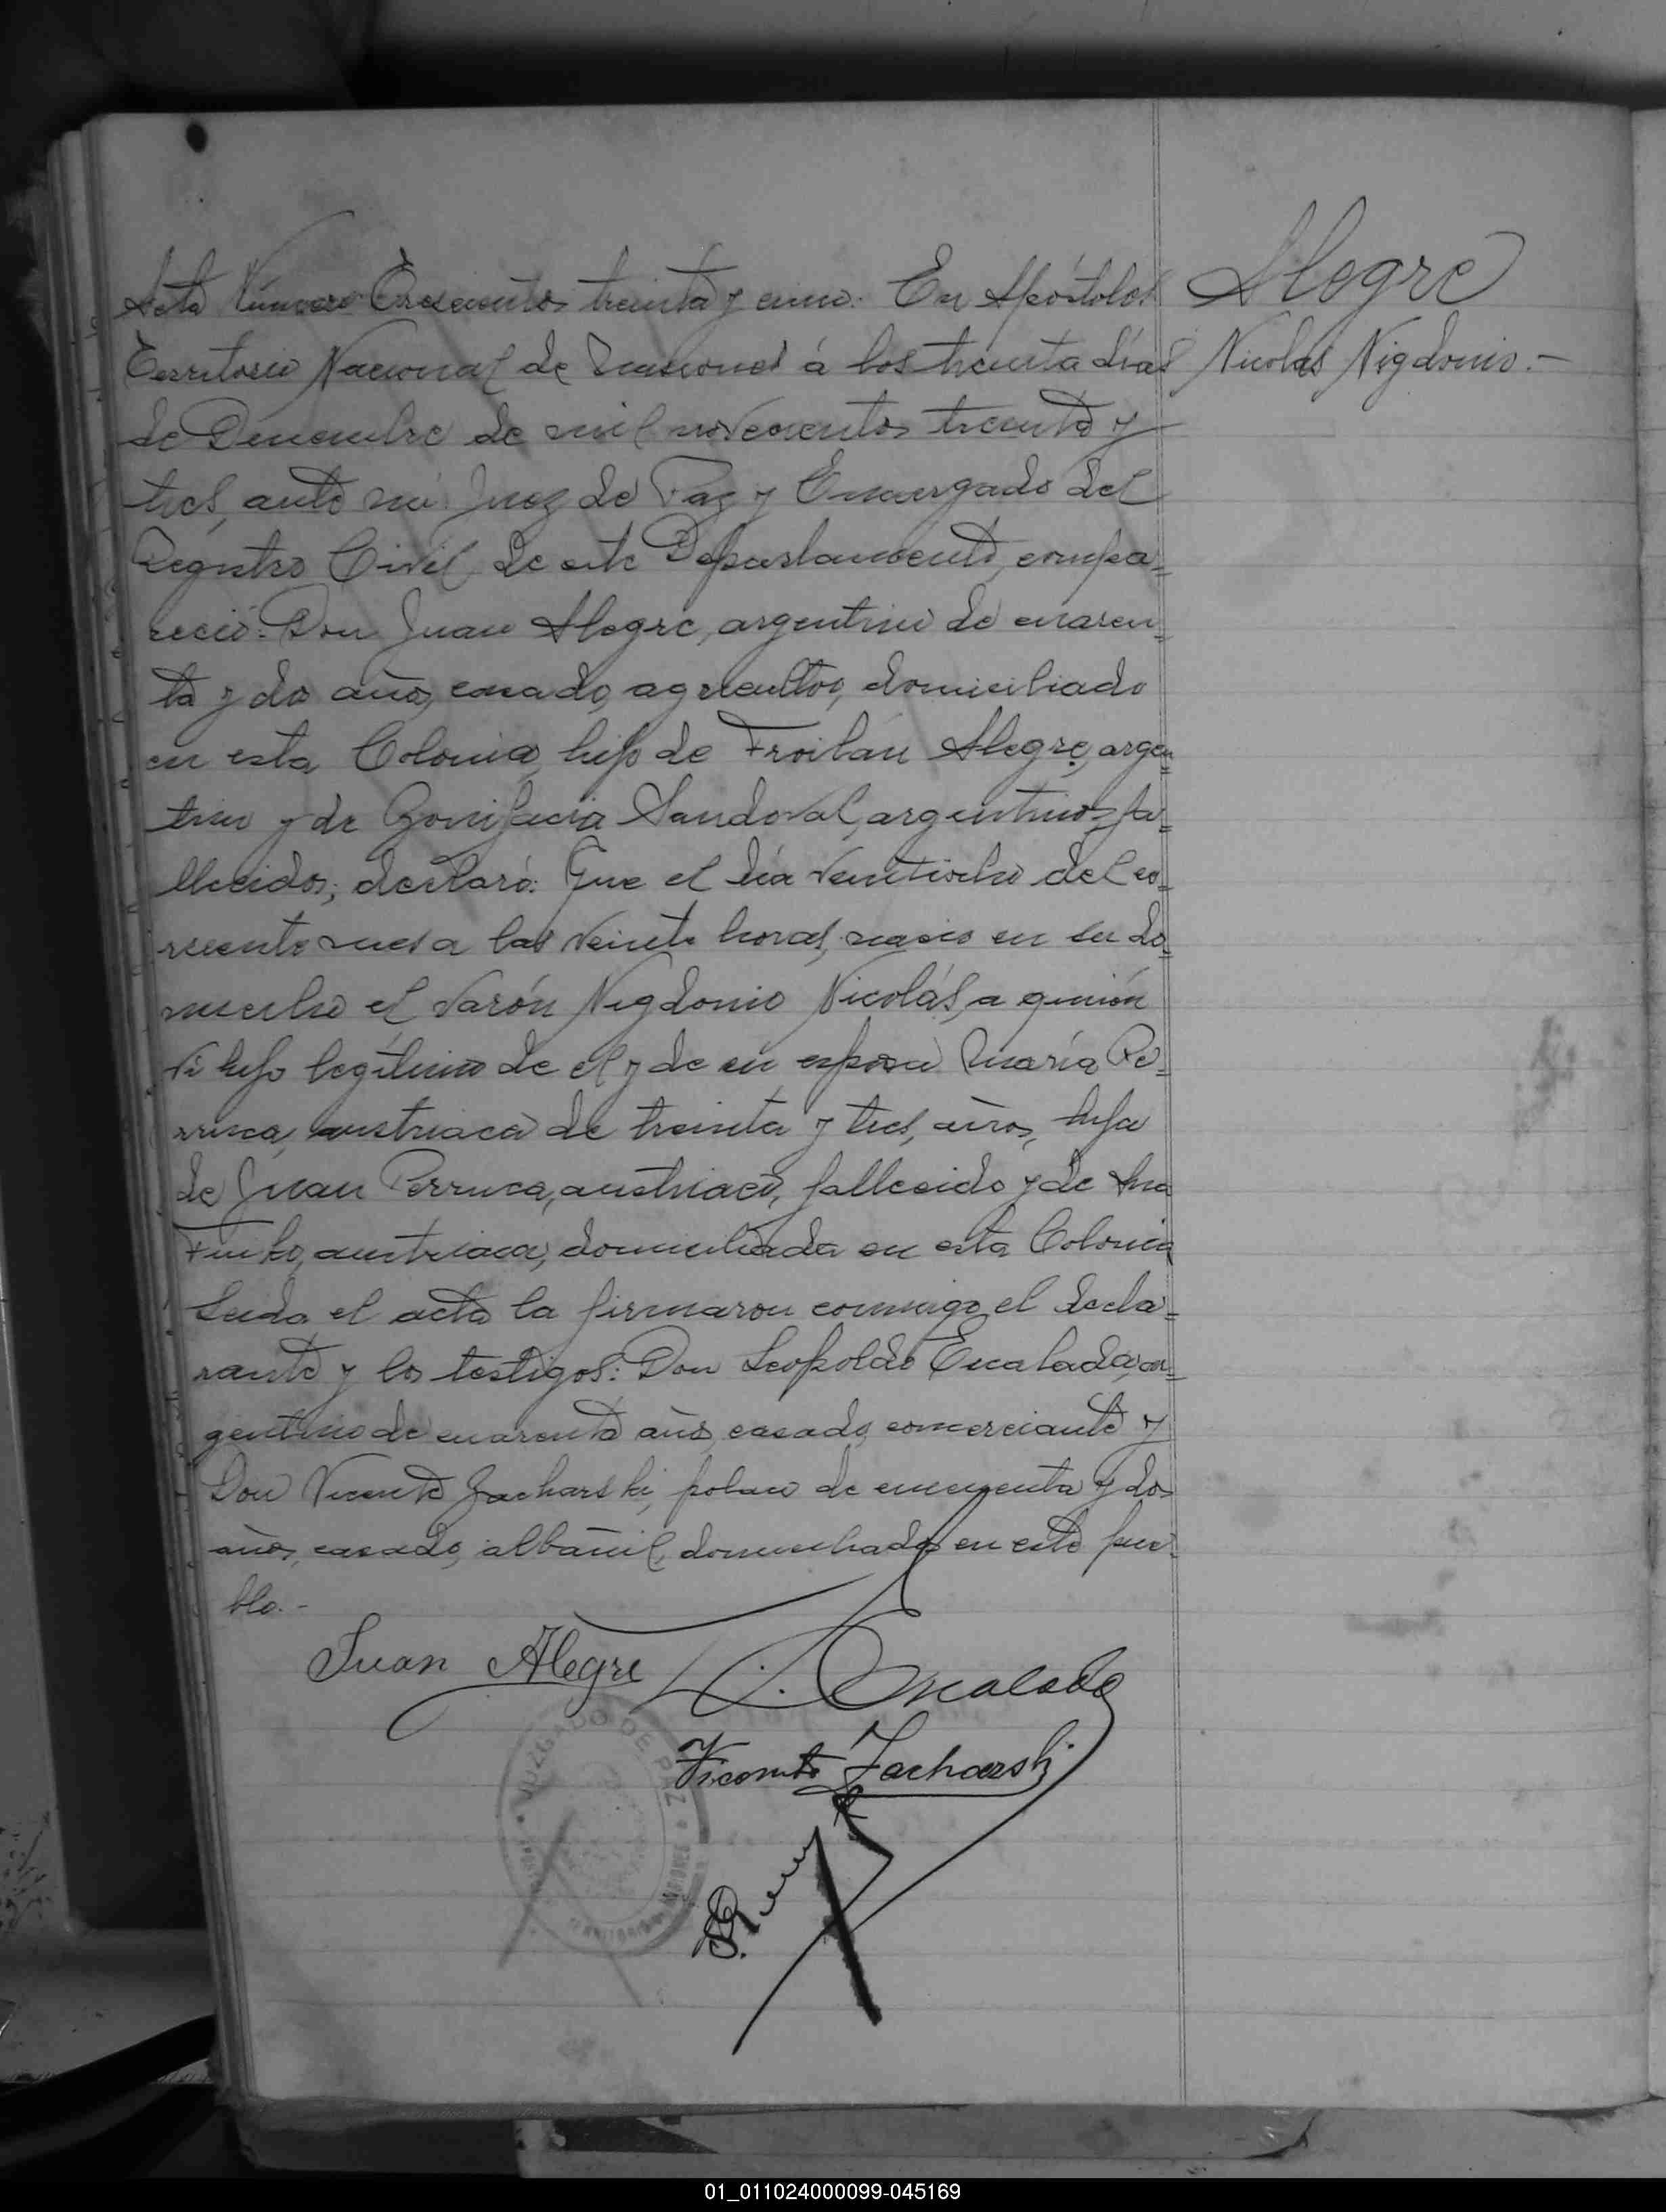 Acta Número Trescientos treinta y cinco. En Apóstoles
Territorio Nacional de Misiones á los treinta días
de Diciembre de mil novecientos treinta y
tres, ante mi Juez de Paz y Encargado del
Registro Civil de este Departamento, compa=
reció: Don Juan Alegre, argentino de cuaren=
ta y dos años, casado, agricultor, domiciliado
en esta Colonia, hijo de Froilán Alegre, argen=
tino y de Bonifacia Sandoval, argentinos, fa=
llecidos; declaró: Que el día veintiocho del co=
rriente mes a las veinte horas, nacio en su do=
micilio el varón Nigdonio Nicolás, a quién
vi hijo legítimo de el y de su esposa María Pe=
rruca, austriaca de treinta y tres, años, hija
de Juan Perruca, austriaco, fallecido y de Ana
austriaca, domiciliada en esta Colonia
Leida el acta la firmaron conmigo el decla=
rante y los testigos: Don Leopoldo Escalada, ar=
gentino de cuarenta años, casado, comerciante y
Don Vicente Zacharski, polaco de cincuenta y dos
años, casado, albañil, domiciliados en este pue=
blo.-
Alegre
Nicolas Nigdonio.-
Juan Alegre
L. Escalada
Vicente Zacharski
JUZGADO DE PAZ
MISIONES
01_011024000099-045169